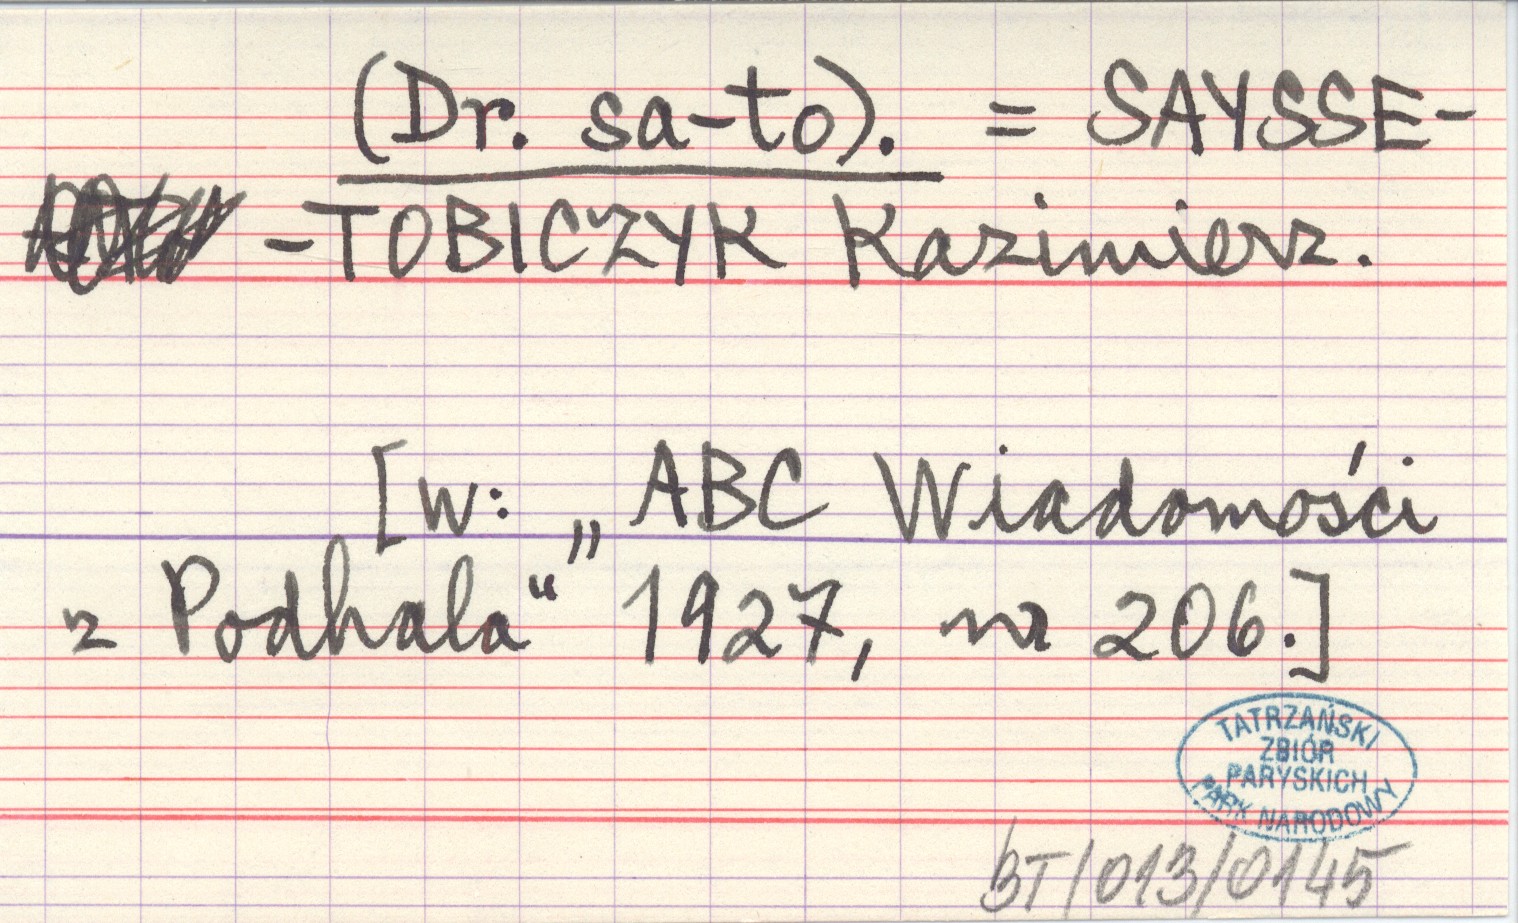 (Dr. sa-to). = SAYSSE-
-TOBICZYK Kazimierz.
[w: „ABC Wiadomości
z Podhala“ 1927, nr 206.]
TATRZAŃSKI
ZBIÓR
PARYSKICH
PARK NARODOWY
BT/013/0145